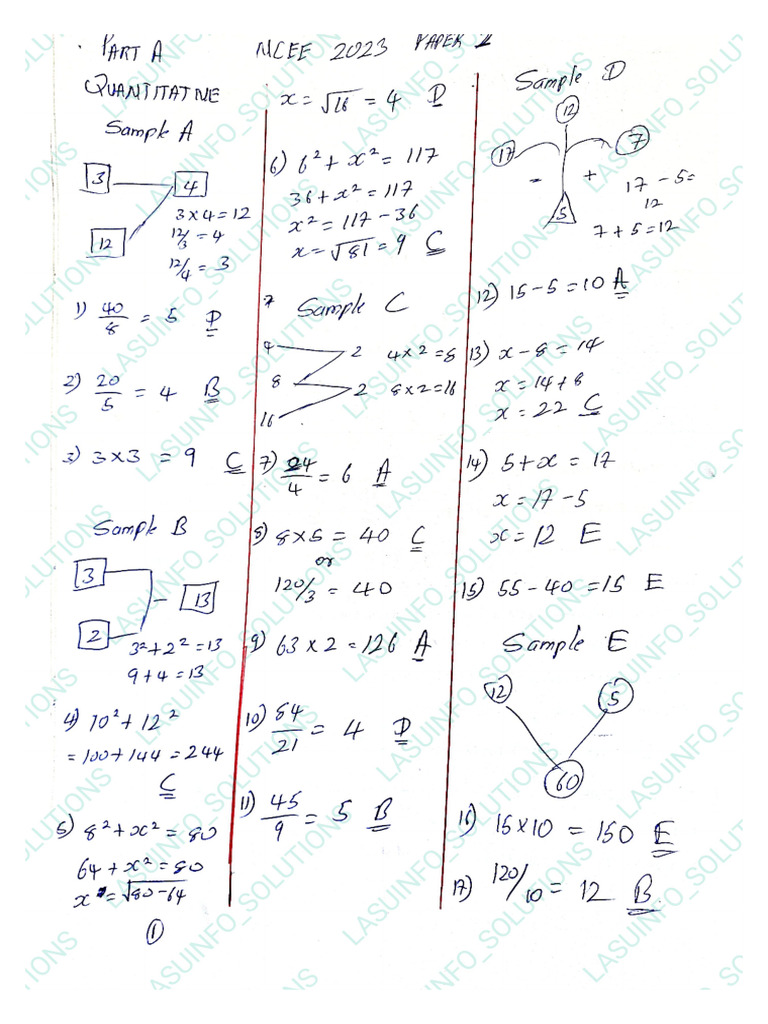 PART A
NCEE 2023 PAPER 1
QUANTITATIVE
Sample A
3
4
12
3 x 4 = 12
12/3 = 4
12/4 = 3
1) 40/8 = 5 D
2) 20/5 = 4 B
3) 3 x 3 = 9 C
Sample B
3
13
2
3² + 2² = 13
9 + 4 = 13
4) 10² + 12²
= 100 + 144 = 244
C
5) 8² + x² = 80
64 + x² = 80
x = √80-64
1
x = √16 = 4 D
6) 6² + x² = 117
36 + x² = 117
x² = 117 - 36
x = √81 = 9 C
7 Sample C
4
2 4 x 2 = 8
8
2 8 x 2 = 16
16
7) 24/4 = 6 A
8) 8 x 5 = 40 C
or
120/3 = 40
9) 63 x 2 = 126 A
10) 84/21 = 4 D
11) 45/9 = 5 B
Sample D
12
17
7
- +
5
17 - 5 =
12
7 + 5 = 12
12) 15 - 5 = 10 A
13) x - 8 = 14
x = 14 + 8
x = 22 C
14) 5 + x = 17
x = 17 - 5
x = 12 E
15) 55 - 40 = 15 E
Sample E
12
5
60
16) 15 x 10 = 150 E
17) 120/10 = 12 B
LASUINFO_SOLUTIONS